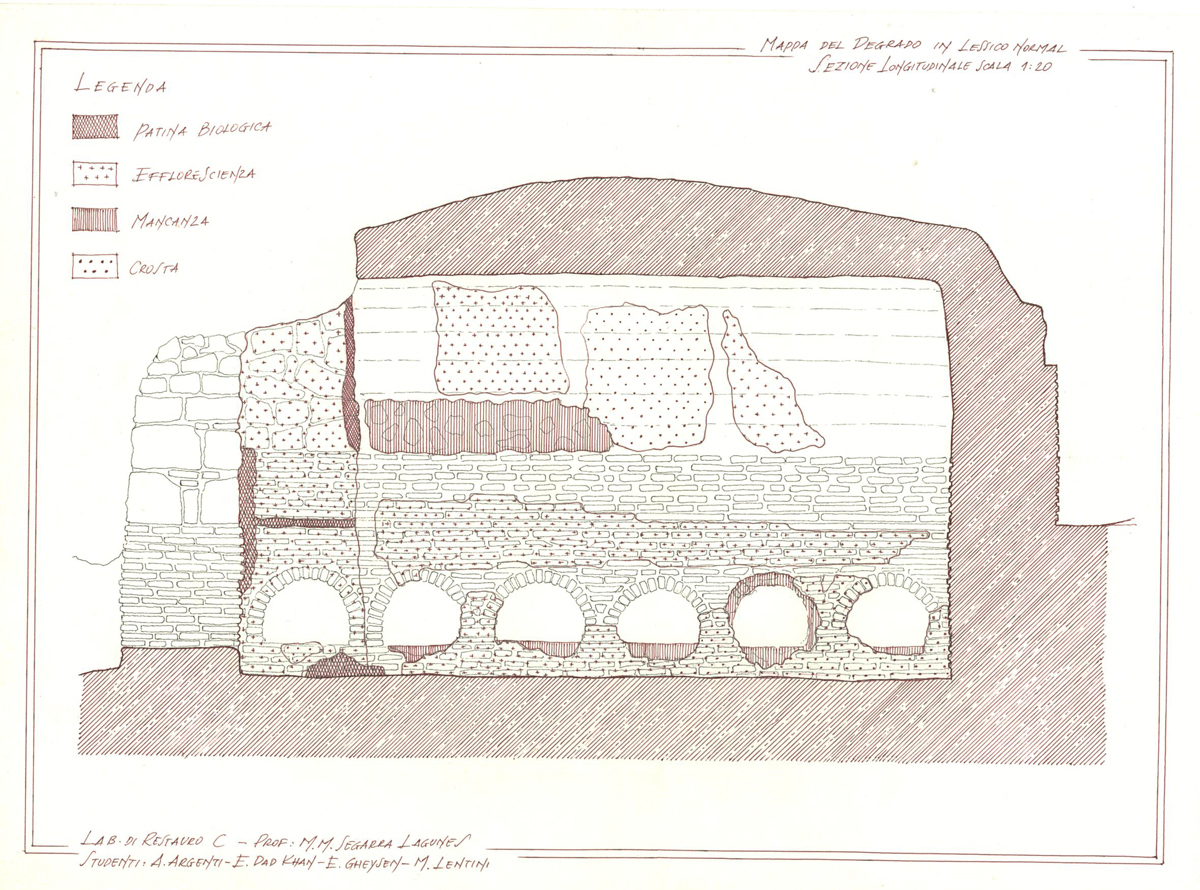 MAPPA DEL DEGRADO IN LESSICO NORMAL
SEZIONE LONGITUDINALE SCALA 1:20
LEGENDA
PATINA BIOLOGICA
EFFLORESCIENZA
MANCANZA
CROSTA
LAB. DI RESTAURO C - PROF: M.M. SEGARRA LAGUNES
STUDENTI: A. ARGENTI - E. DAD KHAN - E. GHEYSEN - M. LENTINI